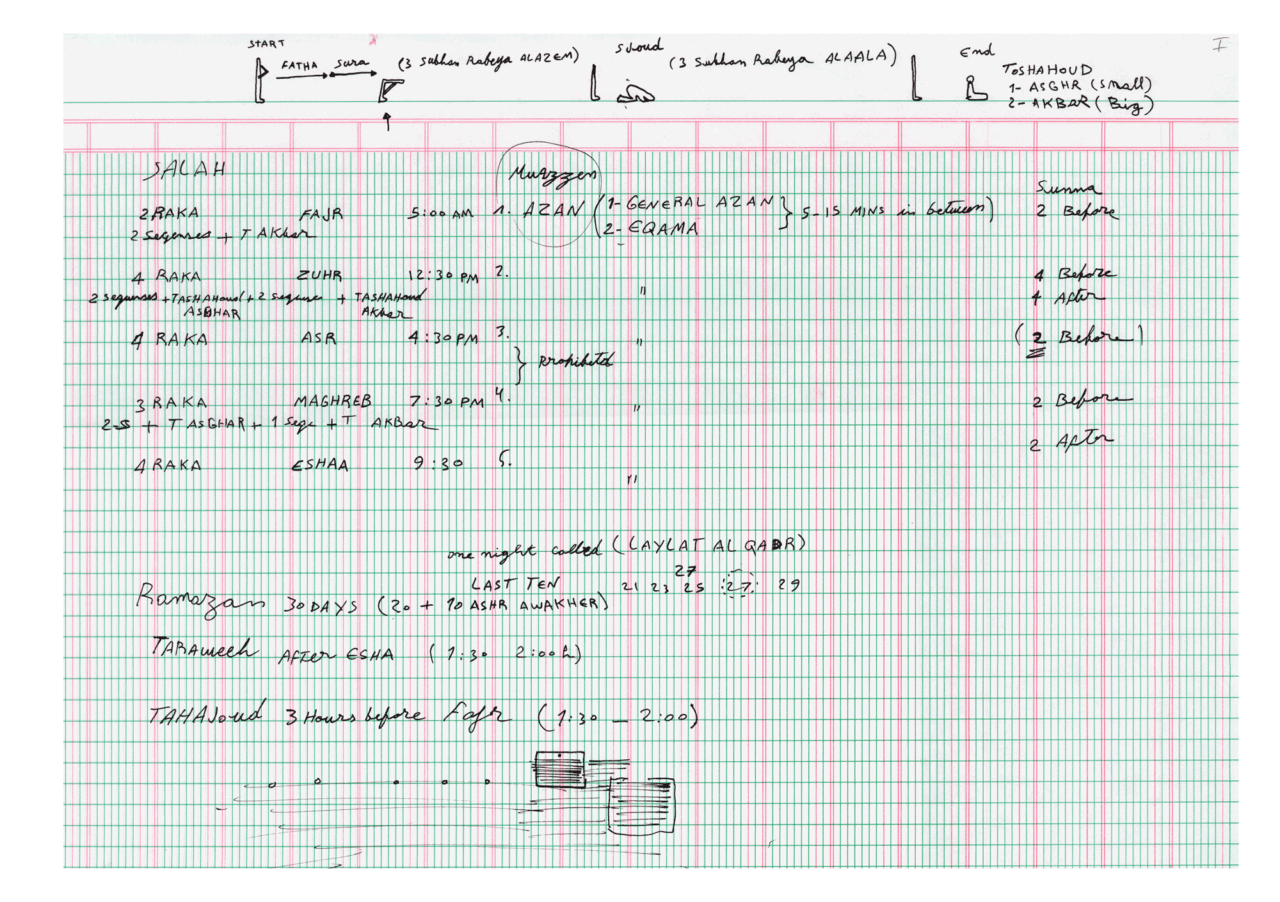 START
FATHA sura (3 Subhan Rabeya ALAZEM)
SJoud (3 Subhan Rabeya ALAALA)
End
TOSHAHOUD
1- ASGHR (small)
2- AKBAR (Big)
I
SALAH
Muazzen
Sunna
2 RAKA FAJR 5:00 AM 1. AZAN (1- GENERAL AZAN } 5-15 MINS in between) 2 Before
2 Segenses + T AKbar
2- EQAMA
4 RAKA ZUHR 12:30 PM 2. " 4 Before
2 segenses + TASHAHoud + 2 Segenses + TASHAHoud 4 After
ASGHAR AKbar
4 RAKA ASR 4:30 PM 3. " (2 Before)
} Prohibeted
3 RAKA MAGHREB 7:30 PM 4. " 2 Before
2-S + T ASGHAR + 1 Sege + T AKBar
2 After
4 RAKA ESHAA 9:30 5. "
one night called (LAYLAT AL QADR)
27
LAST TEN 21 23 25 27 29
Ramazan 30 DAYS (20 + 10 ASHR AWAKHER)
TARAweeh AFTER ESHA (1:30 2:00 h)
TAHAJoud 3 Hours before Fajr (1:30 - 2:00)